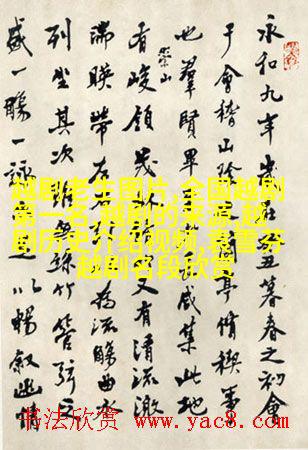 永和九年歲在丑暮春之初會
于會稽山陰亭脩稧事
也羣賢畢咸集此地
有崇山峻領茂又有清流激
湍暎帶左右為流觴曲水
列坐其次絲竹管弦之
盛一觴一詠以暢敘幽情
越剧老生图片,全国越剧
第一名,越剧的来源,越
剧历史介绍视频,袁雪芬
越剧名段欣赏
书法欣赏 www.yac8.com